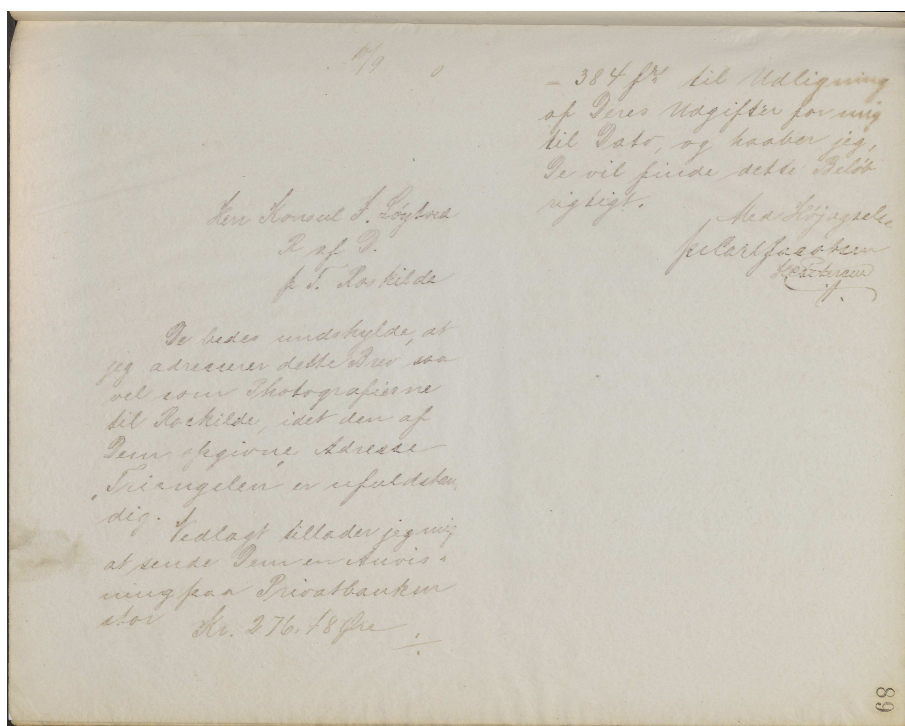 Herr Konsul J. Løytved
R af D.
p. T. Roskilde
De bedes undskylde, at
jeg adresserer dette Brev saa
vel som Photografierne
til Roskilde, idet den af
Dem opgivne Adresse
"Triangelen" er ufuldstæn-
dig.
Vedlagt tillader jeg mig
at sende Dem en Anvis-
ning paa Privatbanken
stor
Kr. 276.48 Øre
= 384 frs til Udligning
af Deres Udgifter for mig
til Dato, og haaber jeg,
De vil finde dette Beløb
rigtigt.
Med Højagtelse
p. Carl Jacobsen
68